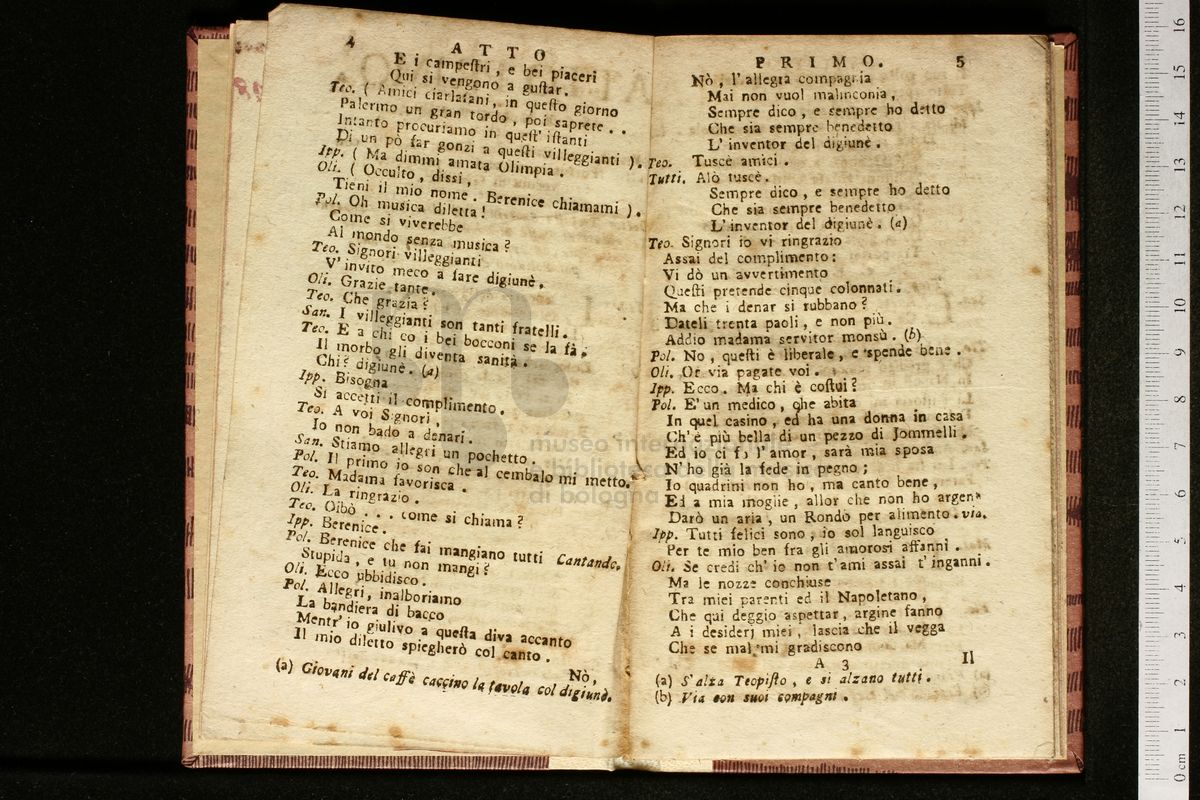 4
ATTO
E i campeſtri, e bei piaceri
Qui si vengono a guſtar.
Teo. ( Amici ciarlatani, in queſto giorno
Palermo un gran tordo, poi saprete . .
Intanto procuriamo in queſt' iſtanti
Di un pò far gonzi a queſti villeggianti ).
Ipp. ( Ma dimmi amata Olimpia.
Oli. ( Occulto, dissi,
Tieni il mio nome. Berenice chiamami ).
Pol. Oh musica diletta!
Come si viverebbe
Al mondo senza musica?
Teo. Signori villeggianti
V' invito meco a fare digiunè.
Oli. Grazie tante.
Teo. Che grazia?
San. I villeggianti son tanti fratelli.
Teo. E a chi co i bei bocconi se la fà,
Il morbo gli diventa sanità.
Chi? digiunè. (a)
Ipp. Bisogna
Si accetti il complimento.
Teo. A voi Signori,
Io non bado a denari.
San. Stiamo allegri un pochetto.
Pol. Il primo io son che al cembalo mi metto.
Teo. Madama favorisca.
Oli. La ringrazio.
Teo. Oibò . . . come si chiama?
Ipp. Berenice.
Pol. Berenice che fai mangiano tutti Cantando.
Stupida, e tu non mangi?
Oli. Ecco ubbidisco.
Pol. Allegri, inalboriamo
La bandiera di bacco
Mentr' io giulivo a queſta diva accanto
Il mio diletto spiegherò col canto.
Nò,
(a) Giovani del caffè caccino la tavola col digiunè.
PRIMO. 5
Nò, l'allegra compagnia
Mai non vuol malinconia,
Sempre dico, e sempre ho detto
Che sia sempre benedetto
L' inventor del digiunè.
Teo. Tuscè amici.
Tutti. Alò tuscè.
Sempre dico, e sempre ho detto
Che sia sempre benedetto
L' inventor del digiunè. (a)
Teo. Signori io vi ringrazio
Assai del complimento:
Vi dò un avvertimento
Queſti pretende cinque colonnati.
Ma che i denar si rubbano?
Dateli trenta paoli, e non più.
Addio madama servitor monsù. (b)
Pol. No, queſti è liberale, e spende bene.
Oli. Or via pagate voi.
Ipp. Ecco. Ma chi è coſtui?
Pol. E' un medico, che abita
In quel casino, ed ha una donna in casa
Ch' è più bella di un pezzo di Jommelli.
Ed io ci fo l'amor, sarà mia sposa
N' ho già la fede in pegno;
Io quadrini non ho, ma canto bene,
Ed a mia moglie, allor che non ho argen
Darò un aria, un Rondò per alimento. via.
Ipp. Tutti felici sono, io sol languisco
Per te mio ben fra gli amorosi affanni.
Oli. Se credi ch' io non t'ami assai t'inganni.
Ma le nozze conchiuse
Tra miei parenti ed il Napoletano,
Che qui deggio aspettar, argine fanno
A i desiderj miei, lascia che il vegga
Che se mal mi gradiscono
A 3 Il
(a) S'alza Teopiſto, e si alzano tutti.
(b) Via con suoi compagni.
museo internazionale
e biblioteca
di bologna
0 cm 1 2 3 4 5 6 7 8 9 10 11 12 13 14 15 16